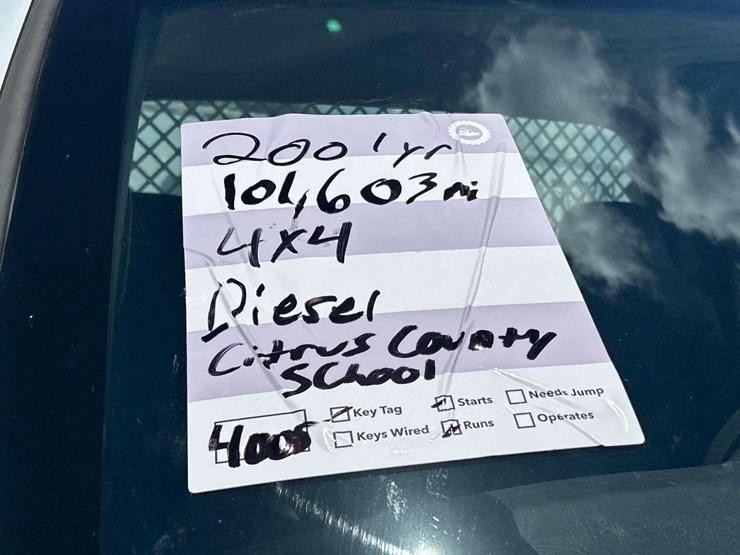 2001 yr
101,603 mi
4x4
Diesel
Citrus County
School
Key Tag Starts Needs Jump
Keys Wired Runs Operates